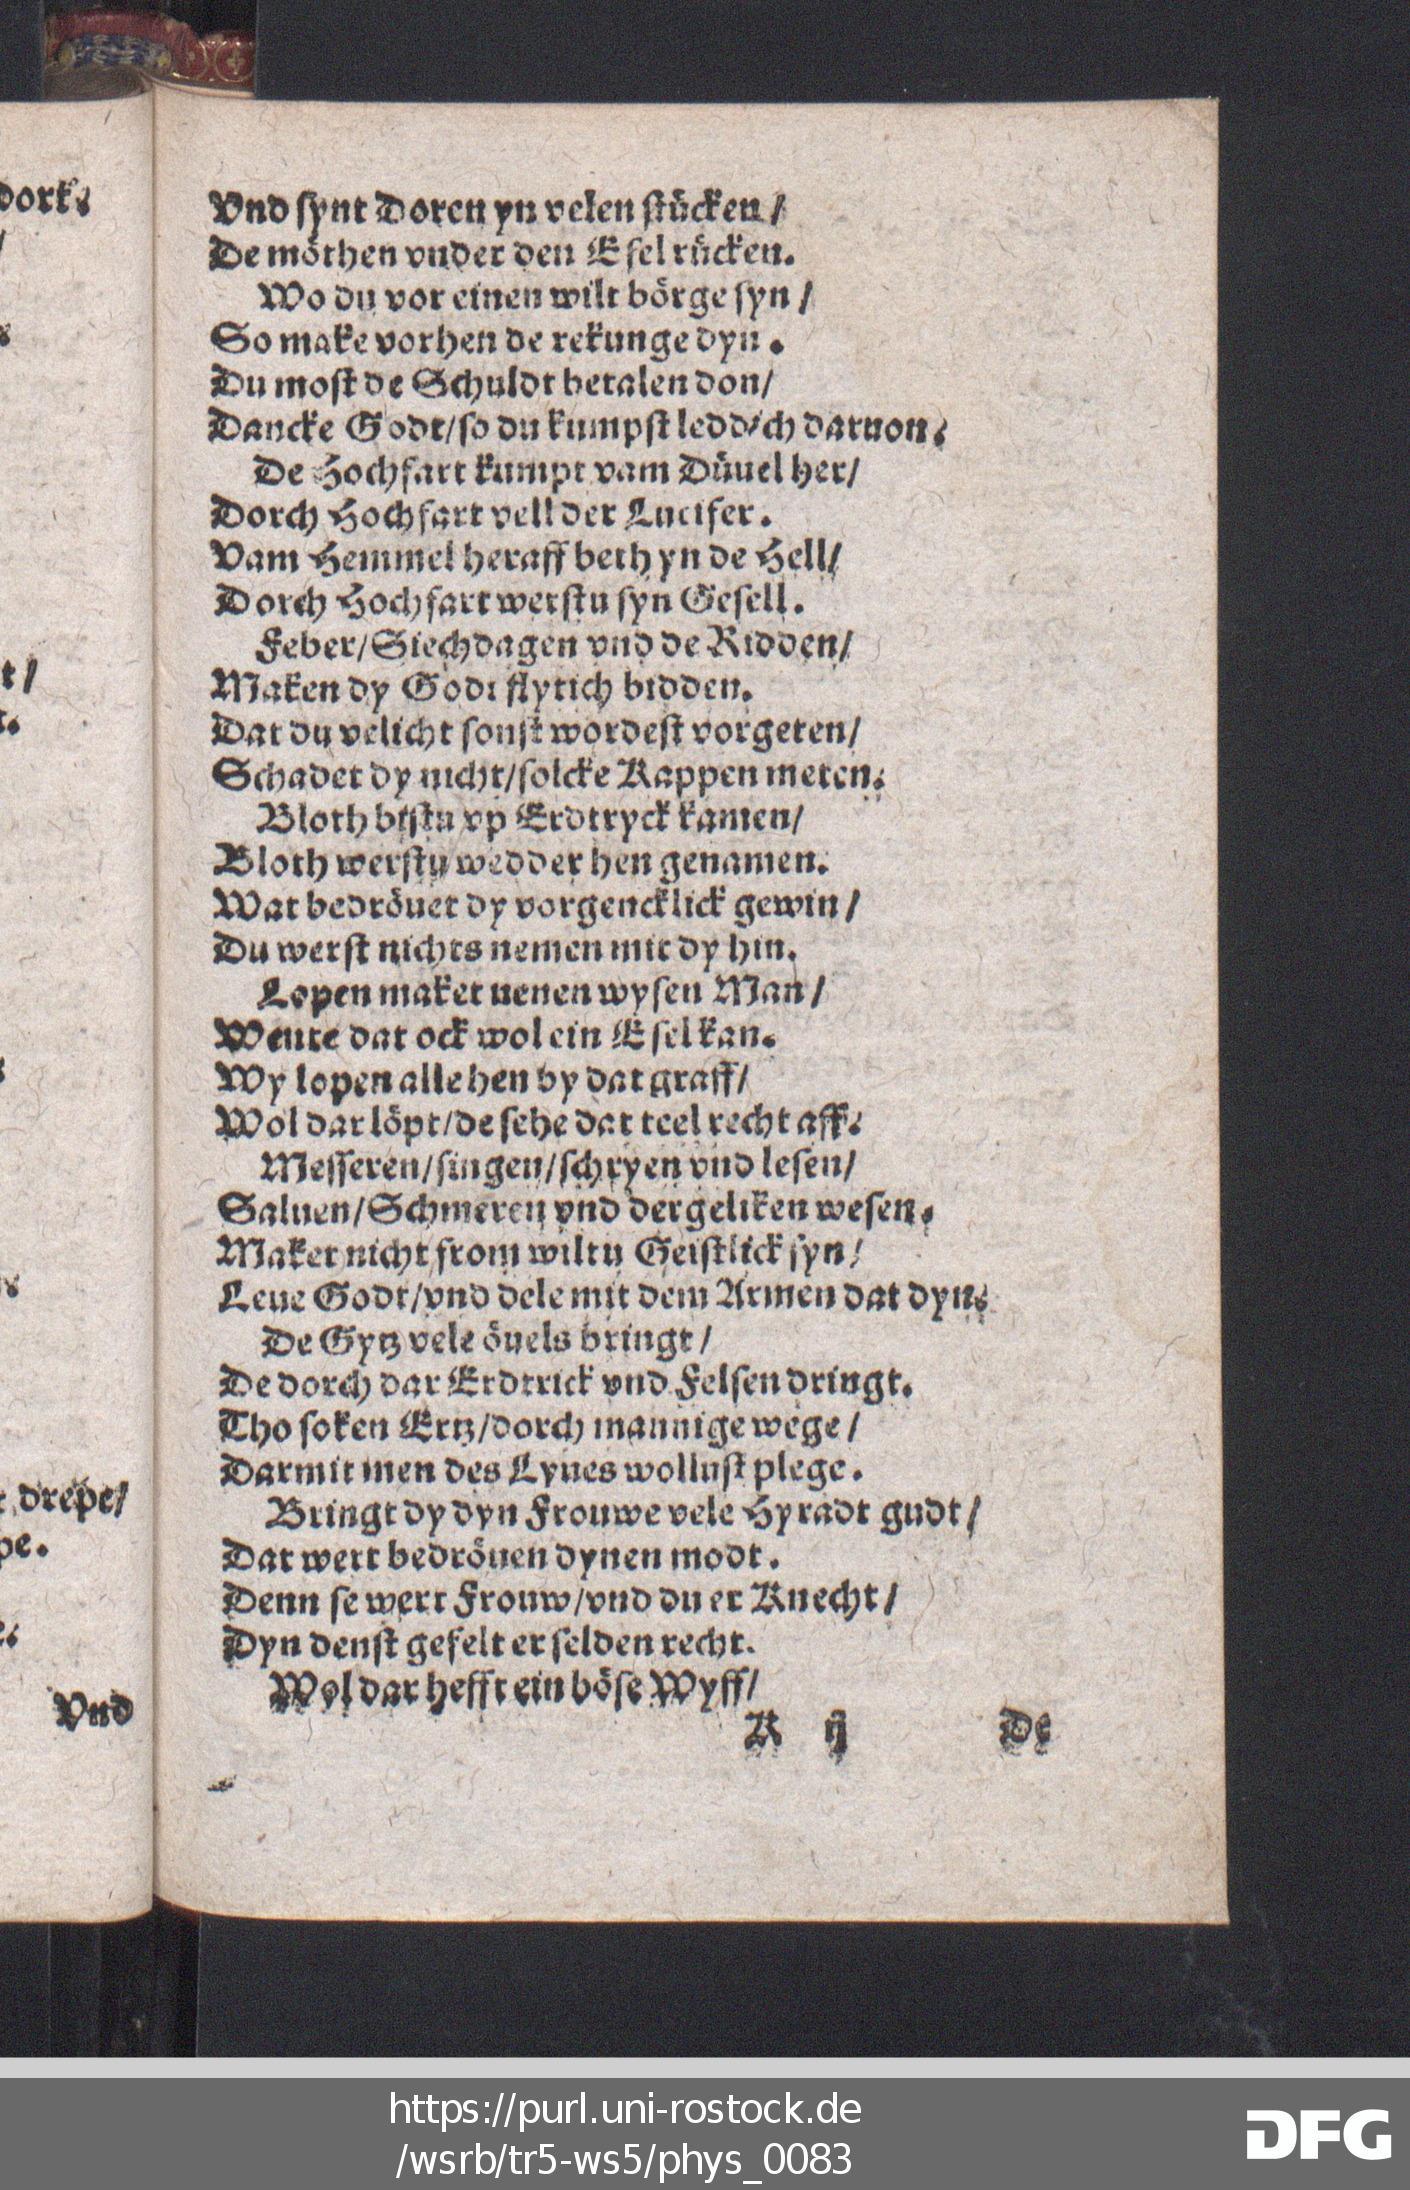 Vnd ſynt Doren yn velen ſtücken /
De möthen vnder den Eſel rücken.
Wo du vor einen wilt börge ſyn /
So make vorhen de rekunge dyn.
Du moſt de Schuldt betalen don/
Dancke Godt/ſo du kumpſt leddich daruon.
De Hochfart kumpt vam Düuel her/
Dorch Hochfart vell der Lucifer.
Vam Hemmel heraff beth yn de Hell/
Dorch Hochfart werſtu ſyn Geſell.
Feber/Siechdagen vnd de Ridden/
Maken dy Godt flytich bidden.
Dat du velicht ſonſt wordeſt vorgeten/
Schadet dy nicht/ſolcke Kappen meten.
Bloth biſtu vp Erdtryck kamen/
Bloth werſtu wedder hen genamen.
Wat bedröuet dy vorgencklick gewin /
Du werſt nichts nemen mit dy hin.
Lopen maket nenen wyſen Man /
Wente dat ock wol ein Eſel kan.
Wy lopen alle hen by dat graff/
Wol dar löpt/de ſehe dat teel recht aff.
Meſſeren/ſingen/ſchryen vnd leſen/
Saluen/Schmeren vnd dergeliken weſen.
Maket nicht from wiltu Geiſtlick ſyn/
Leue Godt/vnd dele mit dem Armen dat dyn.
De Gytz vele öuels bringt /
De dorch dat Erdtrick vnd Felſen dringt.
Tho ſoken Ertz/dorch mannige wege /
Darmit men des Lyues wolluſt plege.
Bringt dy dyn Frouwe vele Hyradt gudt /
Dat wert bedröuen dynen modt.
Denn ſe wert Frouw/vnd du er Knecht /
Dyn denſt gefelt er ſelden recht.
Wol dar hefft ein böſe Wyff/
K ij De
dork.
/
t /
drepet/
pe.
Vnd
https://purl.uni-rostock.de
/wsrb/tr5-ws5/phys_0083
DFG